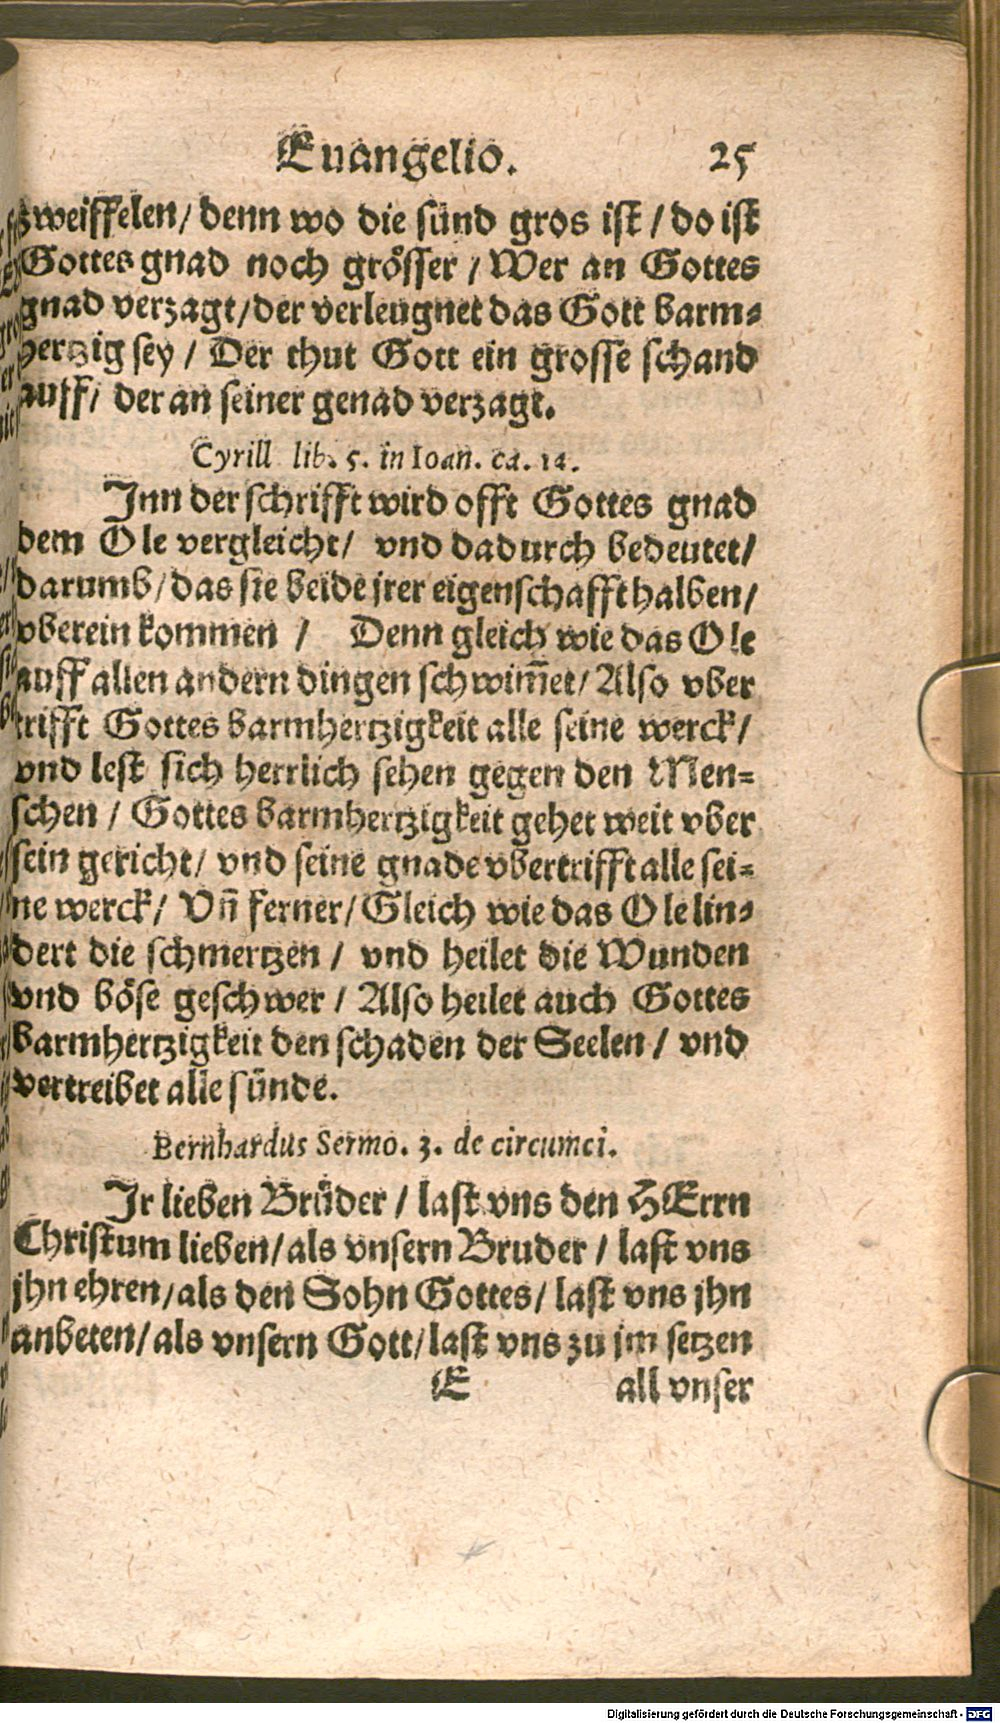 Euangelio. 25
zweiffelen/ denn wo die sünd gros ist / do ist
Gottes gnad noch grösser / Wer an Gottes
gnad verzagt/der verleugnet das Gott barm⸗
hertzig sey / Der thut Gott ein grosse schand
auff/ der an seiner genad verzagt.
Cyrill lib. 5. in Ioan. ca. 14.
Inn der schrifft wird offt Gottes gnad
dem Ole vergleicht/ vnd dadurch bedeutet/
darumb/das sie beide jrer eigenschafft halben/
vberein kommen / Denn gleich wie das Ole
auff allen andern dingen schwim̃et/Also vber
trifft Gottes barmhertzigkeit alle seine werck/
vnd lest sich herrlich sehen gegen den Men⸗
schen / Gottes barmhertzigkeit gehet weit vber
sein gericht/ vnd seine gnade vbertrifft alle sei⸗
ne werck/ Vñ ferner/Gleich wie das Ole lin⸗
dert die schmertzen / vnd heilet die Wunden
vnd böse geschwer / Also heilet auch Gottes
barmhertzigkeit den schaden der Seelen / vnd
vertreibet alle sünde.
Bernhardus Sermo. 3. de circumci.
Ir lieben Brüder / last vns den HErrn
Christum lieben/als vnsern Bruder / last vns
jhn ehren/als den Sohn Gottes/ last vns jhn
anbeten/als vnsern Gott/last vns zu jm setzen
E all vnser
Digitalisierung gefördert durch die Deutsche Forschungsgemeinschaft - DFG